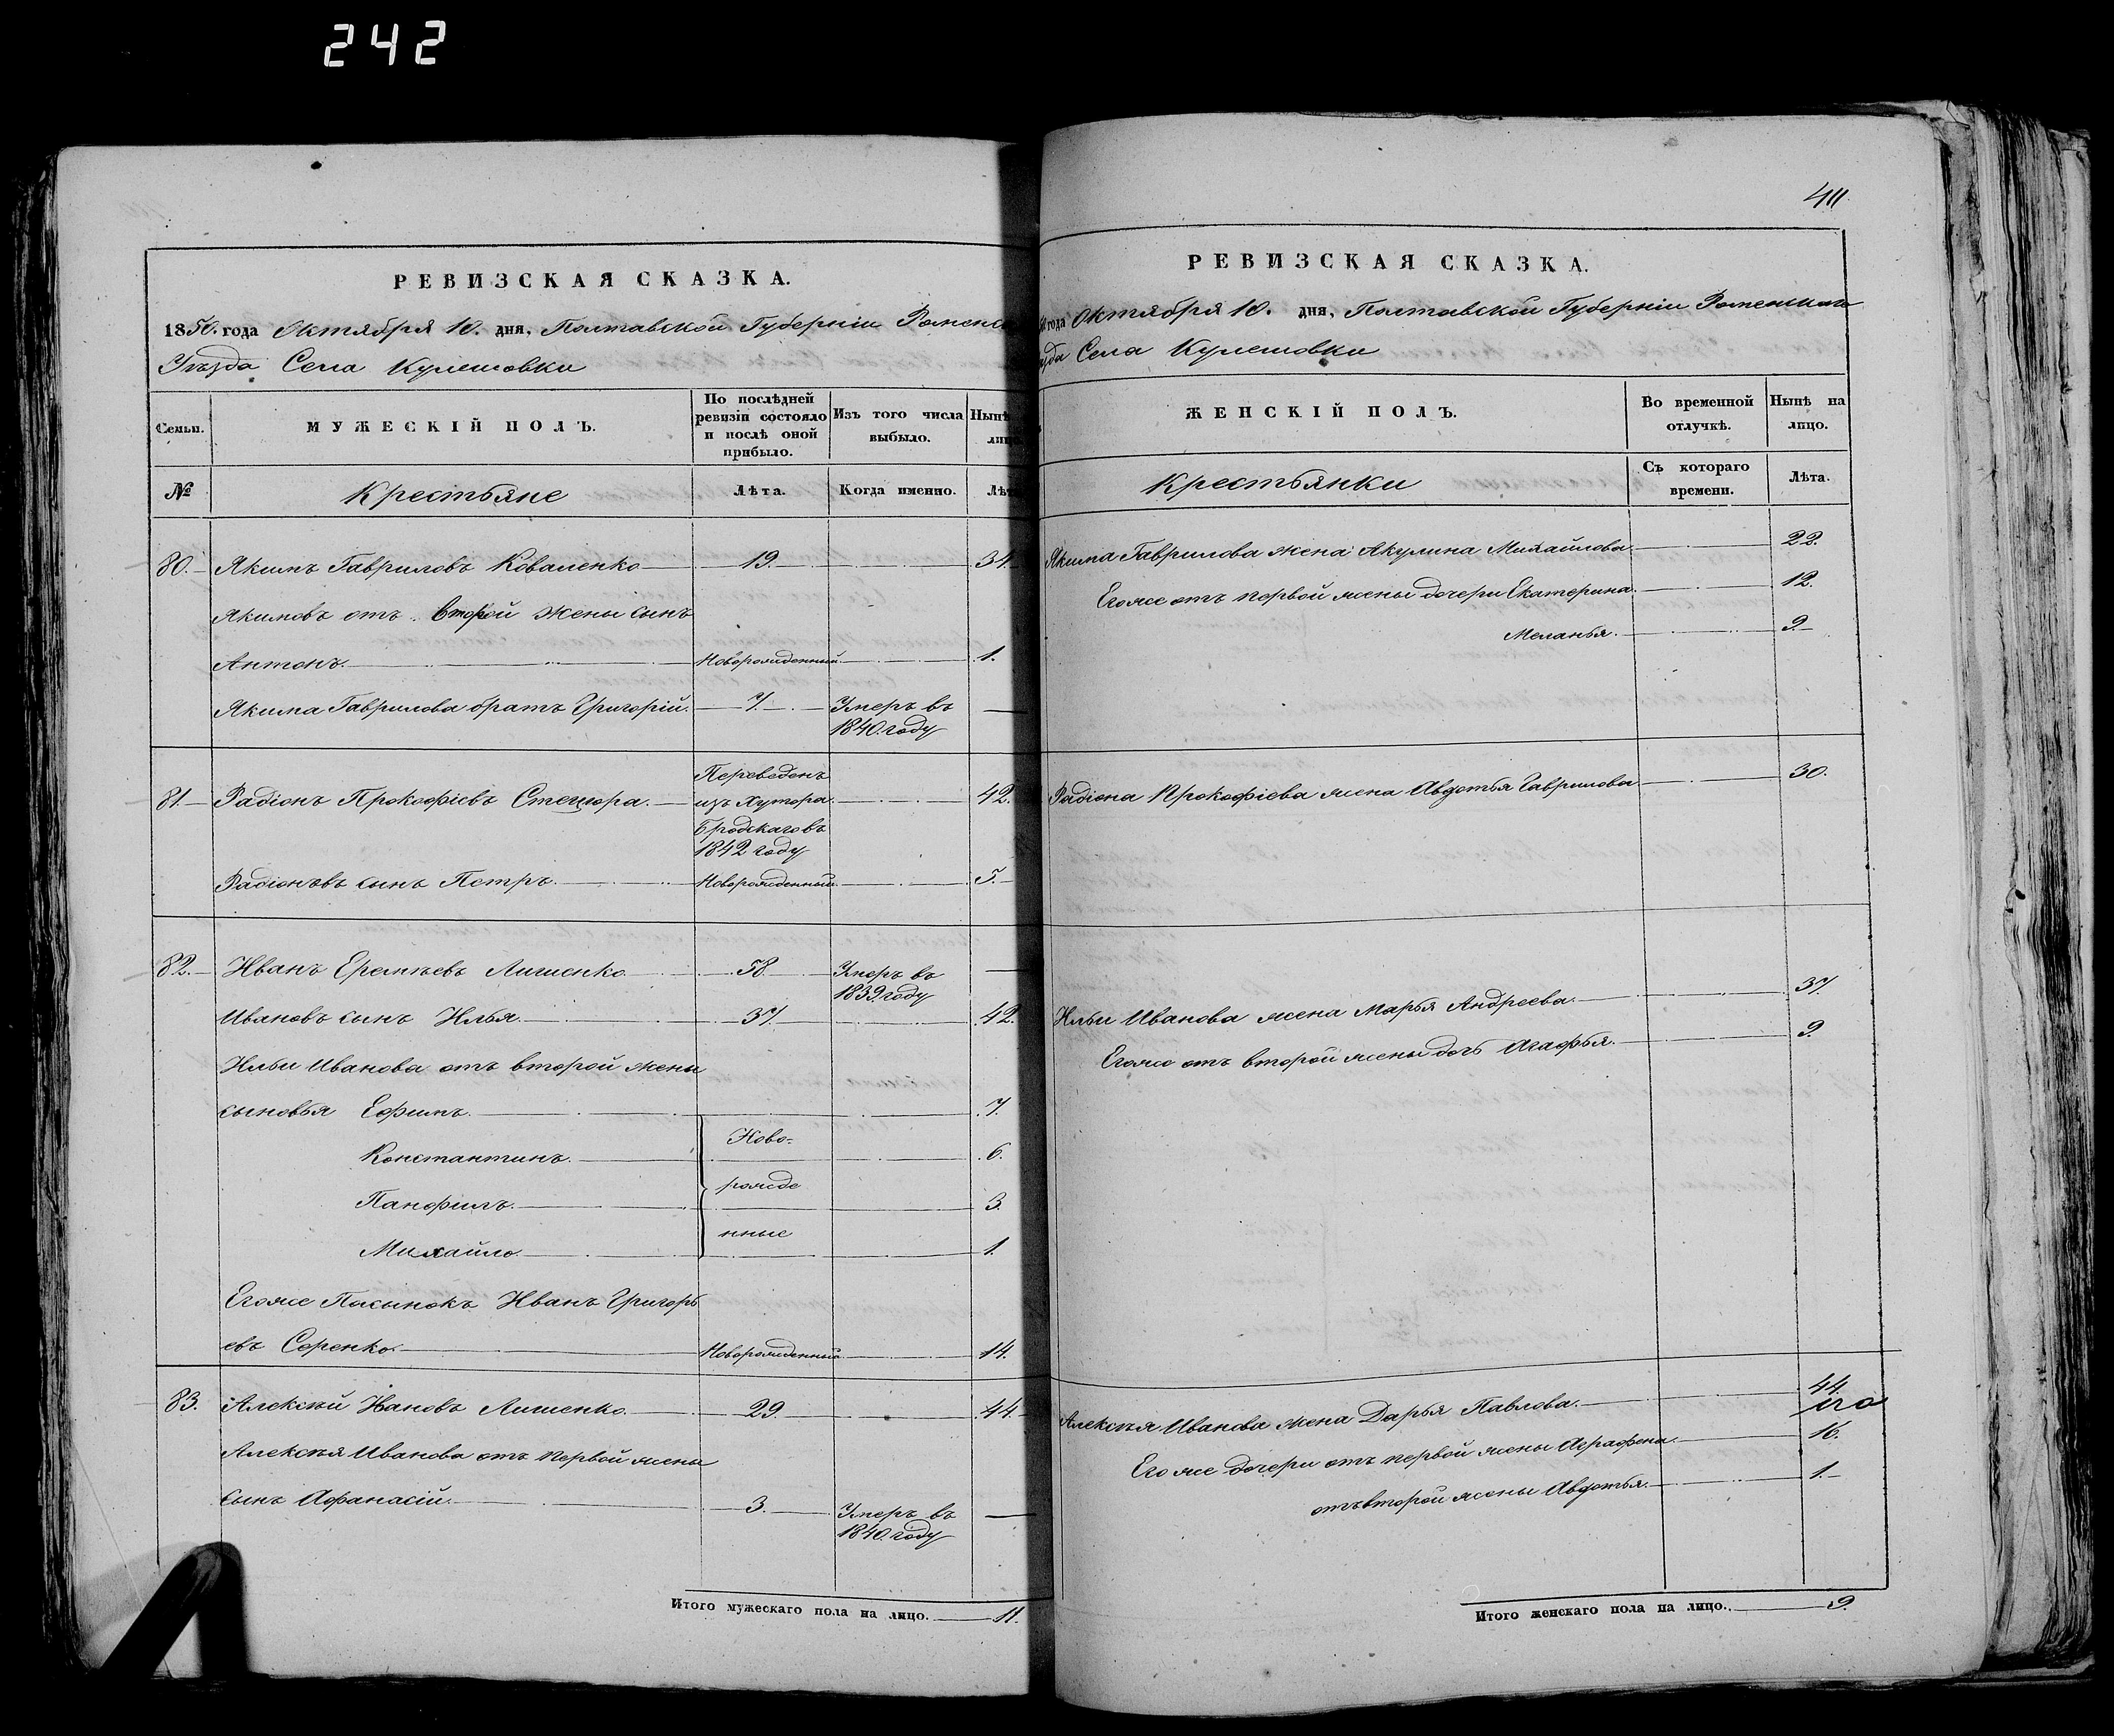 242
РЕВИЗСКАЯ СКАЗКА.
1850. года Октября 10. дня, Полтавской Губерніи Роменск
Уѣзда Села Кулешовки
Семьи. МУЖЕСКІЙ ПОЛЪ. По послѣдней ревизіи состояло и послѣ оной прибыло. Изъ того числа выбыло. Нынѣ лицо
№ Крестьяне Лѣта. Когда именно. Лѣт
80. Якимъ Гавриловъ Коваленко 19. 34.
Якимовъ отъ Второй жены сынъ
Антонъ. Новорожденный. 1.
Якима Гаврилова братъ Григорій. 7. Умеръ въ 1840. году
81. Радіонъ Прокофіевъ Переведенъ изъ Хутора Бродскаго въ 1842 году 42.
Радіоновъ сынъ Петръ. Новорожденный. 5.
82. Иванъ Еремѣевъ Лишенко 58. Умеръ въ 1839 году
Ивановъ сынъ Илья. 37. 42.
Ильи Иванова отъ второй жены
сыновья Ефимъ. 7.
Константинъ. Ново= 6.
Панфилъ. рожде 3.
Михайло. нные 1.
Егоже Пасынокъ Иванъ Григорь
евъ Серенко. Новорожденный. 14.
83. Алексѣй Ивановъ Лишенко. 29. 44.
Алексѣя Иванова отъ первой жены
сынъ Афанасій. 3. Умеръ въ 1840. году
Итого мужескаго пола на лицо. 11.
411.
РЕВИЗСКАЯ СКАЗКА.
года Октября 10. дня, Полтавской Губерніи Роменскаго
зда Села Кулешовки
ЖЕНСКІЙ ПОЛЪ. Во временной отлучкѣ. Нынѣ на лицо.
Крестьянки Съ котораго времени. Лѣта.
Якима Гаврилова жена Акулина Михайлова 22.
Егоже отъ первой жены дочери Екатерина. 12.
Меланья. 9.
Радіона Прокофіева жена Авдотья Гаврилова 30.
Ильи Иванова жена Марья Андреева. 37.
Егоже отъ второй жены дочь Агафья. 9.
Алексѣя Иванова жена Дарья Павлова. 44.
Его же дочери отъ первой жены Аграфена 16.
отъ второй жены Авдотья. 1.
Итого женскаго пола на лицо. 9.